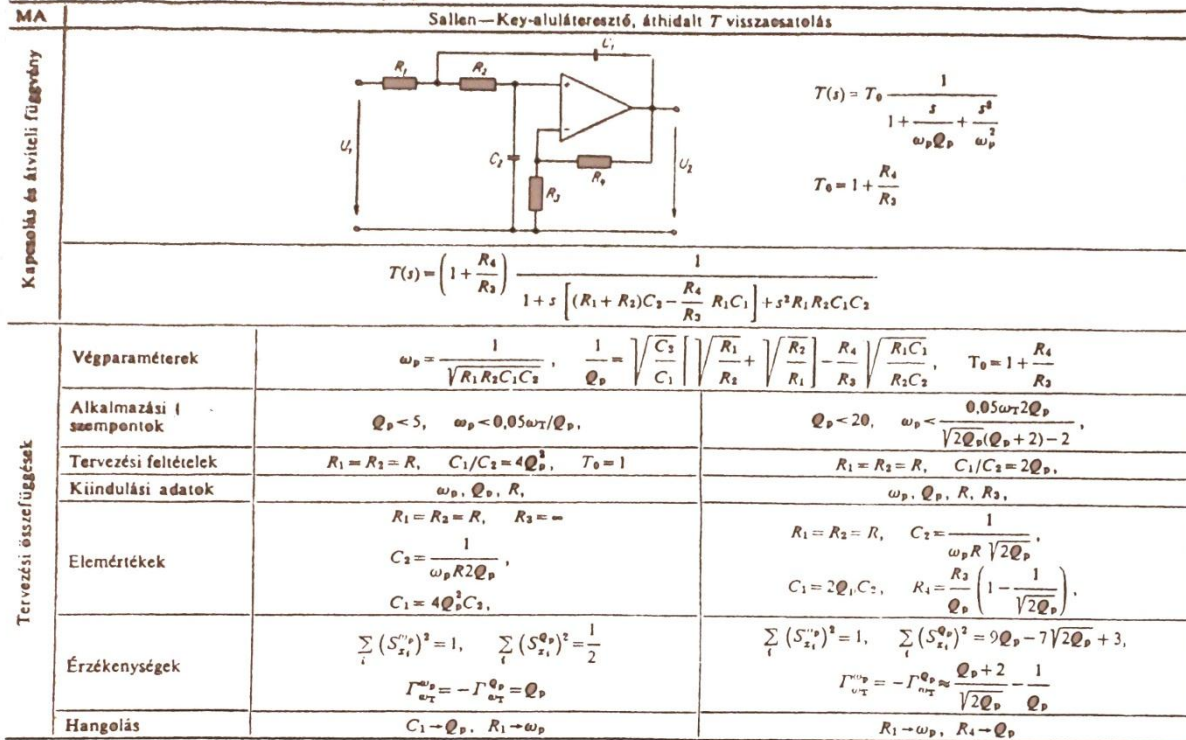 MA
Sallen—Key-aluláteresztő, áthidalt T visszacsatolás
Kapcsolás és átviteli függvény
C₁
R₁
R₂
+
−
U₁
C₂
R₃
R₄
U₂
T(s) = T₀ 1 / (1 + s/(ωₚQₚ) + s²/ωₚ²)
T₀ = 1 + R₄/R₃
T(s) = (1 + R₄/R₃) 1 / (1 + s[(R₁ + R₂)C₂ − (R₄/R₃) R₁C₁] + s²R₁R₂C₁C₂)
Tervezési összefüggések
Végparaméterek
ωₚ = 1/√(R₁R₂C₁C₂), 1/Qₚ = √(C₂/C₁) [√(R₁/R₂) + √(R₂/R₁)] − (R₄/R₃) √(R₁C₁/(R₂C₂)), T₀ = 1 + R₄/R₃
Alkalmazási
szempontok
Qₚ < 5, ωₚ < 0,05ω_T/Qₚ,
Qₚ < 20, ωₚ < 0,05ω_T2Qₚ / (√(2Qₚ)(Qₚ + 2) − 2),
Tervezési feltételek
R₁ = R₂ = R, C₁/C₂ = 4Qₚ², T₀ = 1
R₁ = R₂ = R, C₁/C₂ = 2Qₚ,
Kiindulási adatok
ωₚ, Qₚ, R,
ωₚ, Qₚ, R, R₃,
Elemértékek
R₁ = R₂ = R, R₃ = ∞
C₂ = 1/(ωₚR2Qₚ),
C₁ = 4Qₚ²C₂,
R₁ = R₂ = R, C₂ = 1/(ωₚR√(2Qₚ)),
C₁ = 2QₚC₂, R₄ = (R₃/Qₚ)(1 − 1/√(2Qₚ)),
Érzékenységek
∑ᵢ (S_{xᵢ}^{ωₚ})² = 1, ∑ᵢ (S_{xᵢ}^{Qₚ})² = 1/2
Γ_{ω_T}^{ωₚ} = −Γ_{ω_T}^{Qₚ} = Qₚ
∑ᵢ (S_{xᵢ}^{ωₚ})² = 1, ∑ᵢ (S_{xᵢ}^{Qₚ})² = 9Qₚ − 7√(2Qₚ) + 3,
Γ_{ω_T}^{ωₚ} = −Γ_{ω_T}^{Qₚ} ≈ (Qₚ + 2)/√(2Qₚ) − 1/Qₚ
Hangolás
C₁→Qₚ, R₁→ωₚ
R₁→ωₚ, R₄→Qₚ